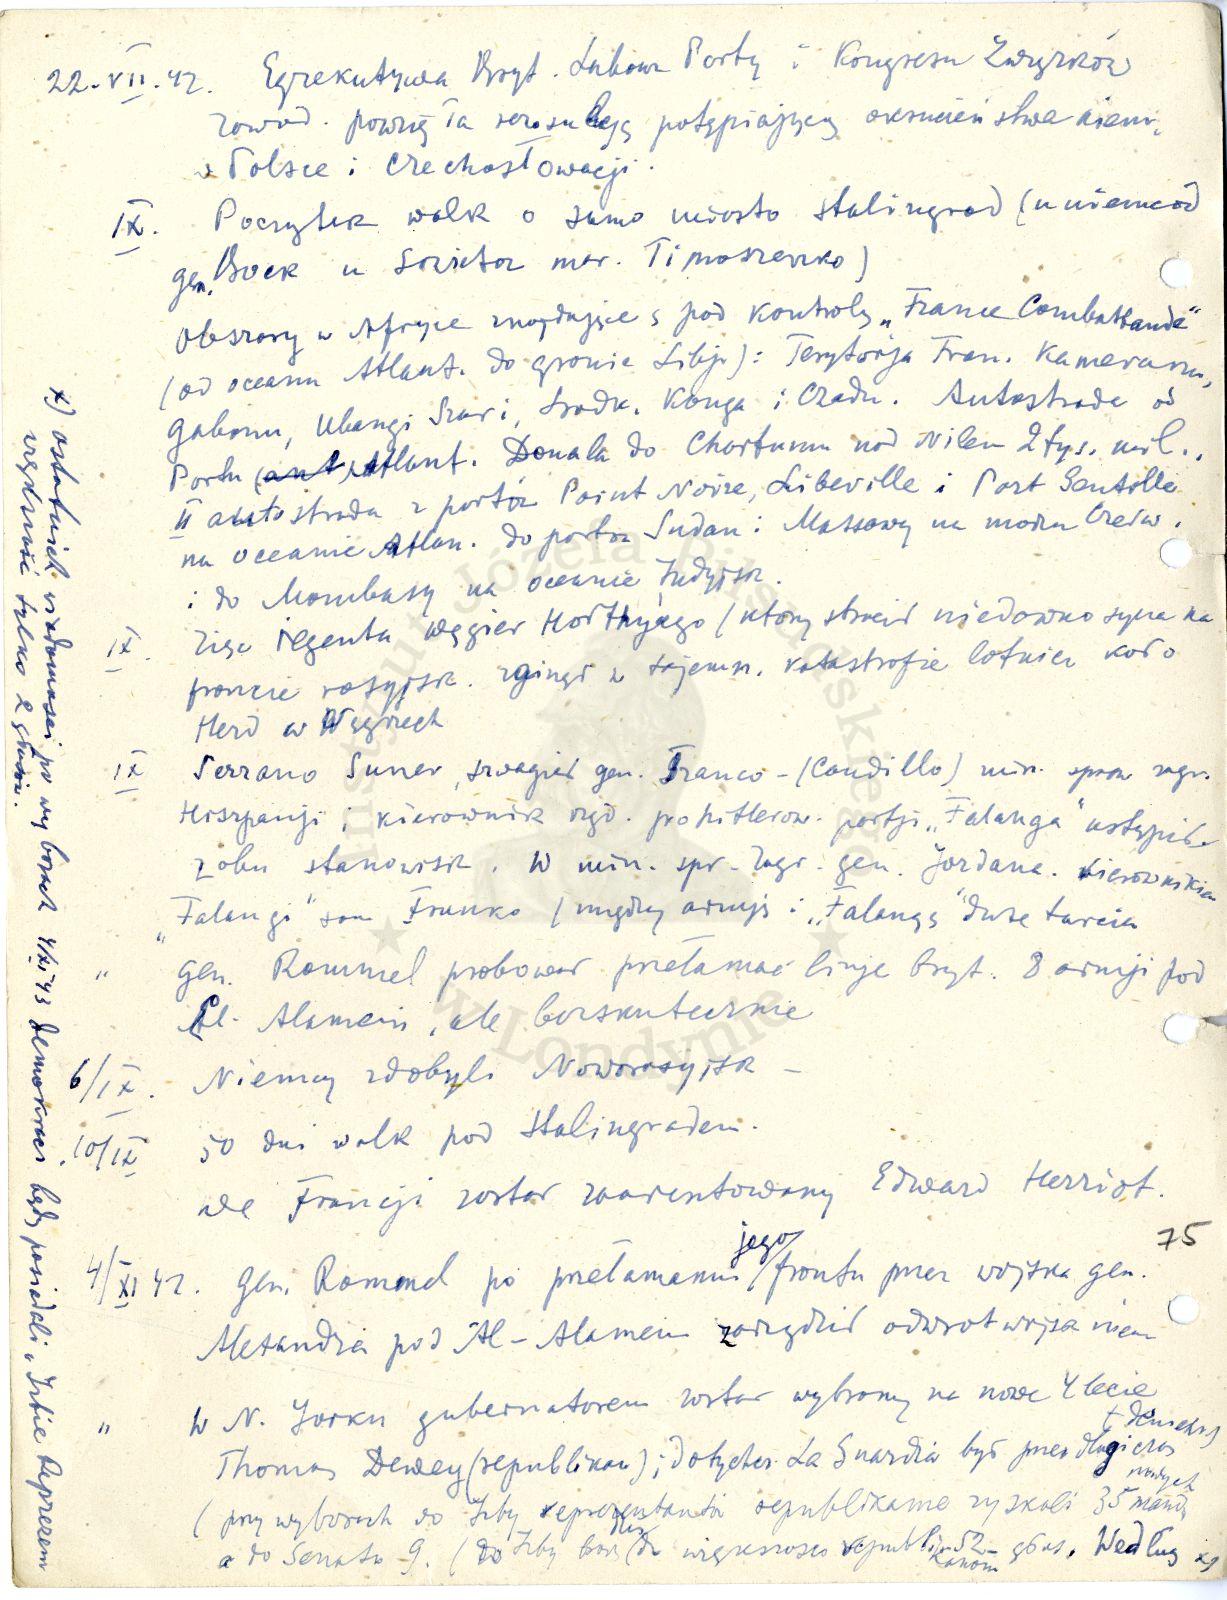 22.VII.42. Egzekutywa Bryt. Labour Party i Kongresu Związków
zawod. powzięła rezolucję potępiającą okrucieństwa niem.
w Polsce i Czechosłowacji.
IX. Początek walk o samo miasto Stalingrad (u niemców
gen. Bock u Sowietów mar. Timoszenko)
Obszary w Afryce znajdujące s pod kontrolą „France Combattante"
(od oceanu Atlant. do granic Libji): Terytorja Fran. Kamerunu,
Gabonu, Ubangi Szari, Środk. Konga i Czadu. Autostrada od
Portu Atlant. Douala do Chartumu nad Nilem 2 tys. mil.,
II autostrada z portów Point Noire, Libeville i Port Gentille
na oceanie Atlan. do portów Sudan i Massawy na morzu Czerw.
i do Mombasy na oceanie Indyjsk.
IX. Regenta węgier Horthy'ego (który stracił niedawno syna na
froncie rosyjsk. zginął w tajemn. katastrofie lotnicz koło
w Węgrzech
IX Serrano Suner, szwagier gen. Franco - (Caudillo) min. spraw zagr.
Hiszpanji i kierownik prohitlerow. partji „Falanga" ustąpił
z obu stanowisk. W min. spr. zagr. gen. Jordana. Kierownikiem
„Falangi" sam Franko (między armją i „Falangą" duże tarcia
" gen. Rommel próbował przełamać linje bryt. 8 armji pod
El. Alamein, ale bezskutecznie
6/IX. Niemcy zdobyli Noworosyjsk -
10/IX. 50 dni walk pod Stalingradem.
we Francji został zaaresztowany Edward Herriot.
75
4/XI 42. Gen. Rommel po przełamaniu jego frontu przez wojska gen.
Alexandra pod Al-Alamein zarządził odwrót wojsk niem
" W N. Jorku gubernatorem został wybrany na nowe 4 lecie
Thomas Dewey (republikan); dotychcz. La Guardia był przez długi czas
(demokr)
(przy wyborach do Izby reprezentantów republikanie zyskali 35 nowych mand
a do Senatu 9. (do Izby do większości republikanom głos. Według x)
x) ostatnich wiadomości po wyborach 4/XI 43 demokraci będą posiadali w Izbie Reprezen
większość tylko 2 głosów.